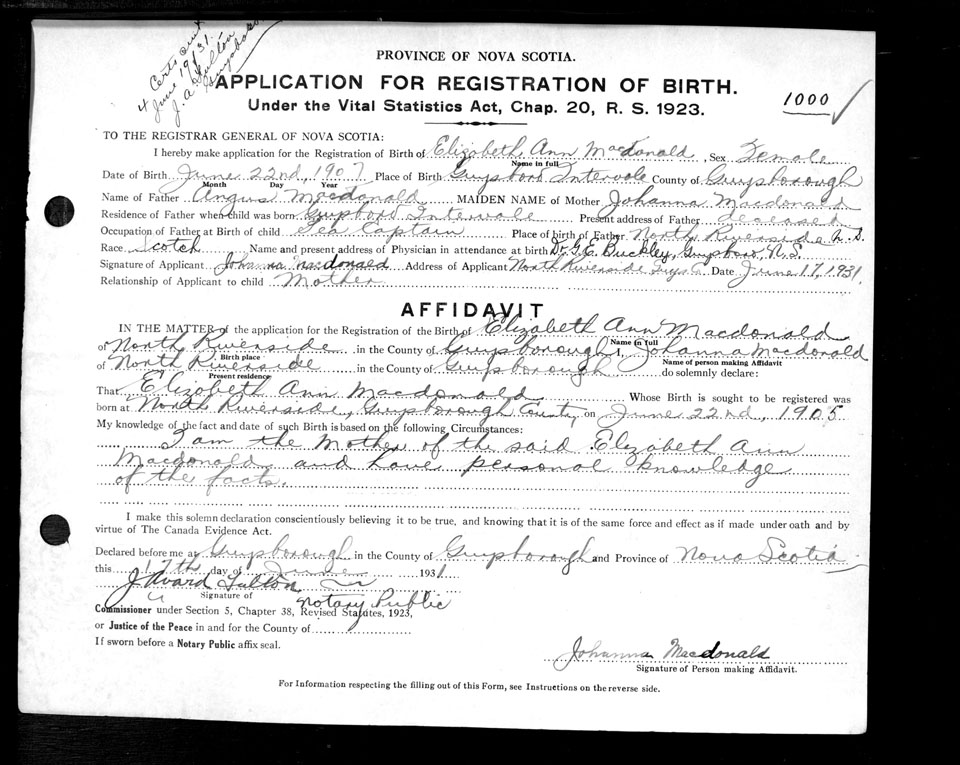 4 Certs sent
June 19/31.
J. A. Fulton
Guysboro
PROVINCE OF NOVA SCOTIA.
APPLICATION FOR REGISTRATION OF BIRTH.
Under the Vital Statistics Act, Chap. 20, R. S. 1923.
1000
TO THE REGISTRAR GENERAL OF NOVA SCOTIA:
I hereby make application for the Registration of Birth of Elizabeth Ann Macdonald, Sex Female
Name in full
Date of Birth June 22nd, 1907. Place of Birth Guysboro Intervale County of Guysborough
Month Day Year
Name of Father Angus Macdonald MAIDEN NAME of Mother Johanna Macdonald
Residence of Father when child was born Guysboro Intervale Present address of Father deceased
Occupation of Father at Birth of child Sea Captain Place of birth of Father North Riverside N.S.
Race Scotch Name and present address of Physician in attendance at birth Dr. G. E. Buckley, Guysboro, N.S.
Signature of Applicant Johanna Macdonald Address of Applicant North Riverside Guys Co. Date June 17, 1931.
Relationship of Applicant to child Mother
AFFIDAVIT
IN THE MATTER of the application for the Registration of the Birth of Elizabeth Ann Macdonald
Name in full
of North Riverside in the County of Guysborough I, Johanna Macdonald
Birth place Name of person making Affidavit
of North Riverside in the County of Guysborough do solemnly declare:
Present residence
That Elizabeth Ann Macdonald Whose Birth is sought to be registered was
born at North Riverside, Guysborough County, on June 22nd, 1905
My knowledge of the fact and date of such Birth is based on the following Circumstances:
I am the Mother of the said Elizabeth Ann
Macdonald and have personal knowledge
of the facts.
I make this solemn declaration conscientiously believing it to be true, and knowing that it is of the same force and effect as if made under oath and by
virtue of The Canada Evidence Act.
Declared before me at Guysborough in the County of Guysborough and Province of Nova Scotia
this 17th day of June 1931
J Avard Fulton
Signature of
Notary Public
Commissioner under Section 5, Chapter 38, Revised Statutes, 1923,
or Justice of the Peace in and for the County of
If sworn before a Notary Public affix seal.
Johanna Macdonald
Signature of Person making Affidavit.
For Information respecting the filling out of this Form, see Instructions on the reverse side.